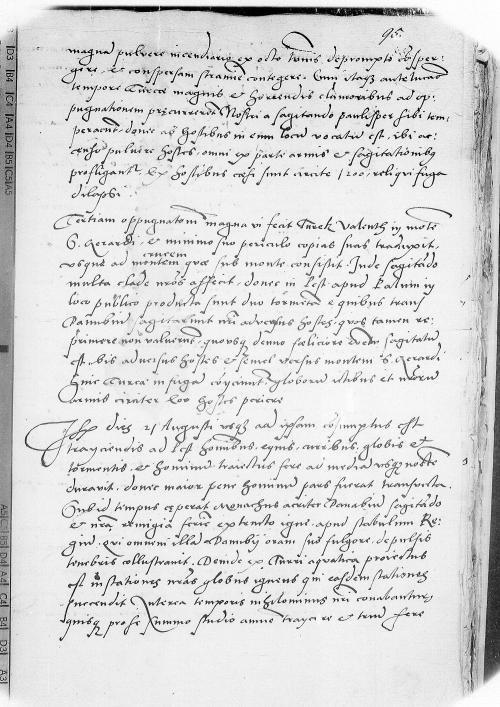 95.
magna pulvere incendiario ex octo tonis deprompto asper-
gere, et conspersam stramine contegere. Cum itaque antelucano
tempore Turcæ magnis et horrendis clamoribus ad op-
pugnationem præcurrerent Nostri a sagitando paulisper sibi tem-
perarunt, donec ab hostibus in eum locum vocatum est, ibi ac-
censo pulvere hostes, omni ex parte armis et sagitationibus
profligantur. Ex hostibus cæsi sunt circite 1200, reliqui fuga
dilapsi.
Tertiam oppugnationem magna vi fecit Turck Valent in monte
S. Gerardi, et minimo suo periculo copias suas traduxit,
usque ad montem crucem quæ sub monte consistit. Inde sagitando
multa clade nostros affecit, donec in Pest apud in
loco publico producta sunt duo tormenta e quibus trans
Danubium sagitarunt nostri adversus hostes, quos tamen re-
primere non valuerunt, quousque demum fœliciore sagitatum
est, bis adversus hostes et semel versus montem S. Gerardi.
Hinc Turcæ in fugam coniiciuntur, globorum ictibus et nostrorum
armis circiter 400 hostes periere.
dies 21 Augusti usque ad ipsam consumptus est
trayciendis ad Pest hominibus, equis, curribus, globis et
tormentis, et hominum traiectus fere ad mediam usque noctem
duravit, donec maior pene hominum pars fuerat transvecta.
Sub id tempus cæperat Monachus acriter Danubium sagitando
et remigia ferire extento igne, apud stabulum Re-
gium, qui omnem illam Danubij oram suo fulgore, depulsis
tenebris collustravit. Deinde ex Turri aquatica proiectus
est in stationes nostras globus igneus qui easdem stationes
succendit. Interea temporis nihilominus nostri conabantur,
quisque pro se summo studio amne traycere et trium fere